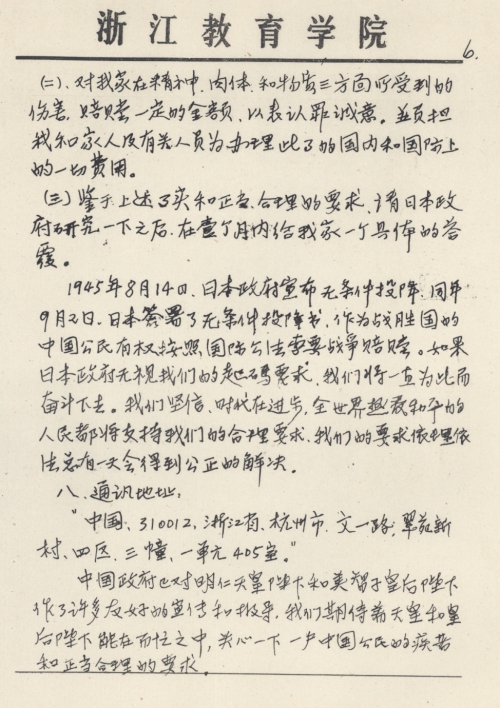 浙江教育学院
6.
(二)、对我家在精神、肉体、和物资三方面所受到的
伤害,赔赔一定的金额,以表认罪诚意。並负担
我和家人及有关人员为办理此事的国内和国际上
的一切费用。
(三)鉴于上述事实和正当、合理的要求,请日本政
府研究一下之后,在壹个月内给我家一个具体的答
覆。
1945年8月14日,日本政府宣布无条件投降,同年
9月2日,日本签署了无条件投降书,作为战胜国的
中国公民有权按照国际公法索要战争赔赔。如果
日本政府无视我们的起码要求,我们将一直为此而
奋斗下去。我们坚信,时代在进步,全世界热爱和平的
人民都将支持我们的合理要求,我们的要求依理依
法总有一天会得到公正的解决。
八、通讯地址:
"中国、310012、浙江省、杭州市、文一路,翠苑新
村、四区、三幢、一单元405室。"
中国政府也对明仁天皇陛下和美智子皇后陛下
作了许多友好的宣传和报导,我们期待着天皇和皇
后陛下能在百忙之中,关心一下一户中国公民的疾苦
和正当合理的要求。